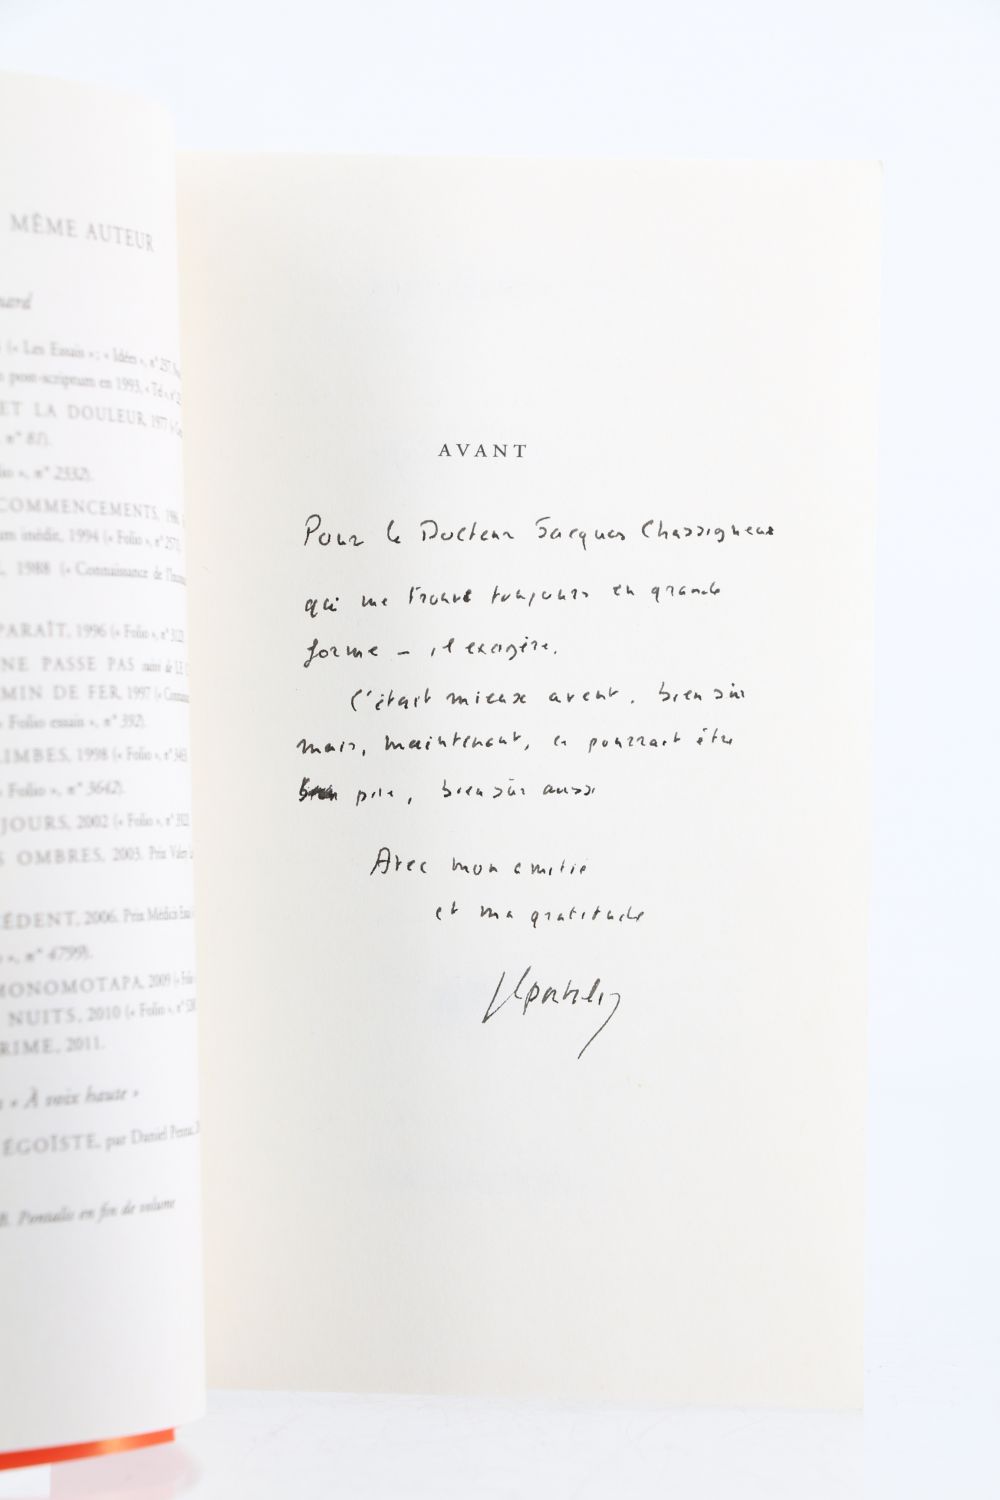 MÊME AUTEUR
(« Les Essais » ; « Idées », n° 257
post-scriptum en 1993, « Tel », n°
ET LA DOULEUR, 1977
n° 81).
n° 2332).
COMMENCEMENTS,
inédit, 1994 (« Folio », n° 2571
1988 (« Connaissance de
PARAÎT, 1996 (« Folio », n°
NE PASSE PAS suivi de LE
MIN DE FER, 1997
« Folio essais », n° 392).
LIMBES, 1998 (« Folio », n°
« Folio », n° 3642).
JOURS, 2002 (« Folio », n°
OMBRES, 2003. Prix
ÉDENT, 2006. Prix Médicis
n° 4799).
MONOMOTAPA, 2009
NUITS, 2010 (« Folio », n°
RIME, 2011.
« À voix haute »
ÉGOÏSTE, par Daniel
B. Pontalis en fin de volume
AVANT
Pour le Docteur Jacques Chassigneux
qui me trouve toujours en grande
forme – il exagère.
C'était mieux avant, bien sûr
mais, maintenant, ce pourrait être
pire, bien sûr aussi
Avec mon amitié
et ma gratitude
JBPontalis